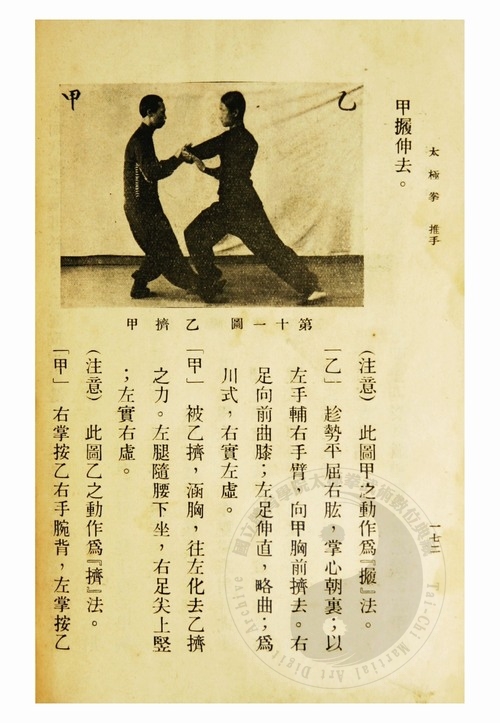 太極拳　推手
一七二
甲擺伸去。
乙
甲
第十一圖　乙擠甲
(注意)　此圖甲之動作爲『擺』法。
「乙」　趁勢平屈右肱，掌心朝裏；以
左手輔右手臂，向甲胸前擠去。右
足向前曲膝；左足伸直，略曲；爲
川式，右實左虛。
「甲」　被乙擠，涵胸，往左化去乙擠
之力。左腿隨腰下坐，右足尖上竪
；左實右虛。
(注意)　此圖乙之動作爲『擠』法。
「甲」　右掌按乙右手腕背，左掌按乙
Tai-Chi Martial Art Digital Archive